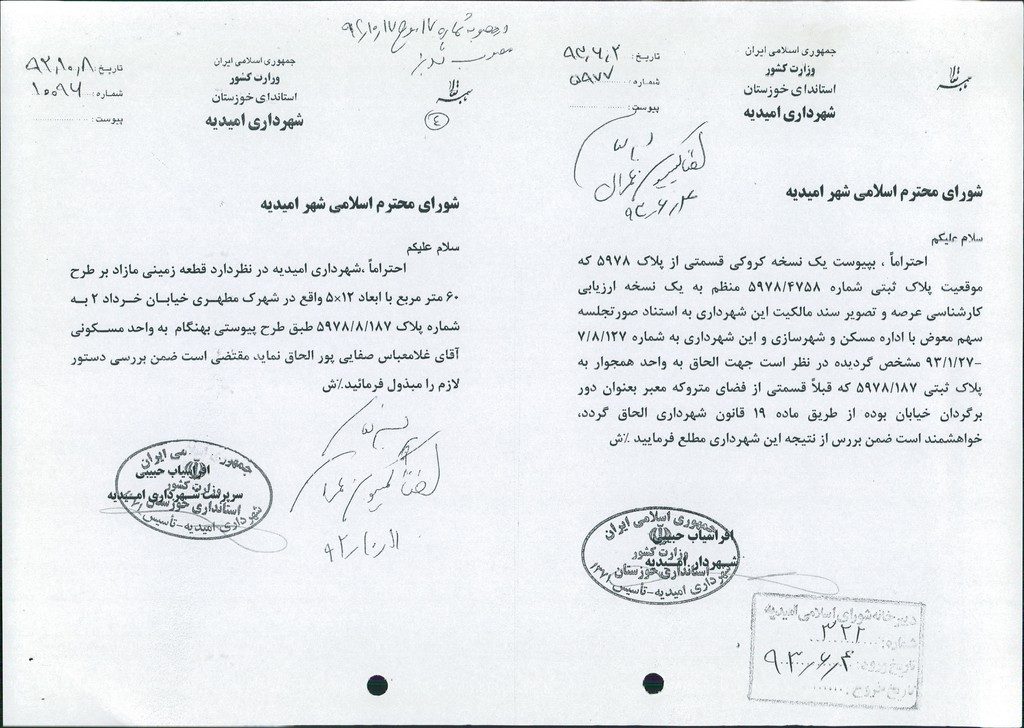 جمهوری اسلامی ایران
وزارت کشور
استانداری خوزستان
شهرداری امیدیه
تاریخ: ۹۳٫۶٫۲
شماره: ۵۹۷۷
پیوست:
کمیسیون عمران
۹۳/۶/۴
شورای محترم اسلامی شهر امیدیه
سلام علیکم
احتراماً ، بپیوست یک نسخه کروکی قسمتی از پلاک ۵۹۷۸ که
موقعیت پلاک ثبتی شماره ۵۹۷۸/۴۷۵۸ منظم به یک نسخه ارزیابی
کارشناسی عرصه و تصویر سند مالکیت این شهرداری به استناد صورتجلسه
سهم معوض با اداره مسکن و شهرسازی و این شهرداری به شماره ۷/۸/۱۲۷
-۹۳/۱/۲۷ مشخص گردیده در نظر است جهت الحاق به واحد همجوار به
پلاک ثبتی ۵۹۷۸/۱۸۷ که قبلاً قسمتی از فضای متروکه معبر بعنوان دور
برگردان خیابان بوده از طریق ماده ۱۹ قانون شهرداری الحاق گردد،
خواهشمند است ضمن بررس از نتیجه این شهرداری مطلع فرمایید ٪ش
افراسیاب حبیبی
شهردار امیدیه
جمهوری اسلامی ایران
وزارت کشور
استانداری خوزستان
شهرداری امیدیه-تأسیس ۱۳۷۱
دبیرخانه شورای اسلامی امیدیه
شماره: ۳۲۲
تاریخ ورود: ۹۳/۶/۴
تاریخ خروج:
جمهوری اسلامی ایران
وزارت کشور
استاندای خوزستان
شهرداری امیدیه
تاریخ: ۹۲٫۱۰٫۸
شماره: ۱۰۰۹۶
پیوست:
۴
شورای محترم اسلامی شهر امیدیه
سلام علیکم
احتراماً ،شهرداری امیدیه در نظردارد قطعه زمینی مازاد بر طرح
۶۰ متر مربع با ابعاد ۱۲×۵ واقع در شهرک مطهری خیابان خرداد ۲ به
شماره پلاک ۵۹۷۸/۸/۱۸۷ طبق طرح پیوستی بهنگام به واحد مسکونی
آقای غلامعباس صفایی پور الحاق نماید مقتضی است ضمن بررسی دستور
لازم را مبذول فرمائید.٪ش
کمیسیون عمران
افراسیاب حبیبی
سرپرست شهرداری امیدیه
جمهوری اسلامی ایران
وزارت کشور
استانداری خوزستان
شهرداری امیدیه-تأسیس ۱۳۷۱